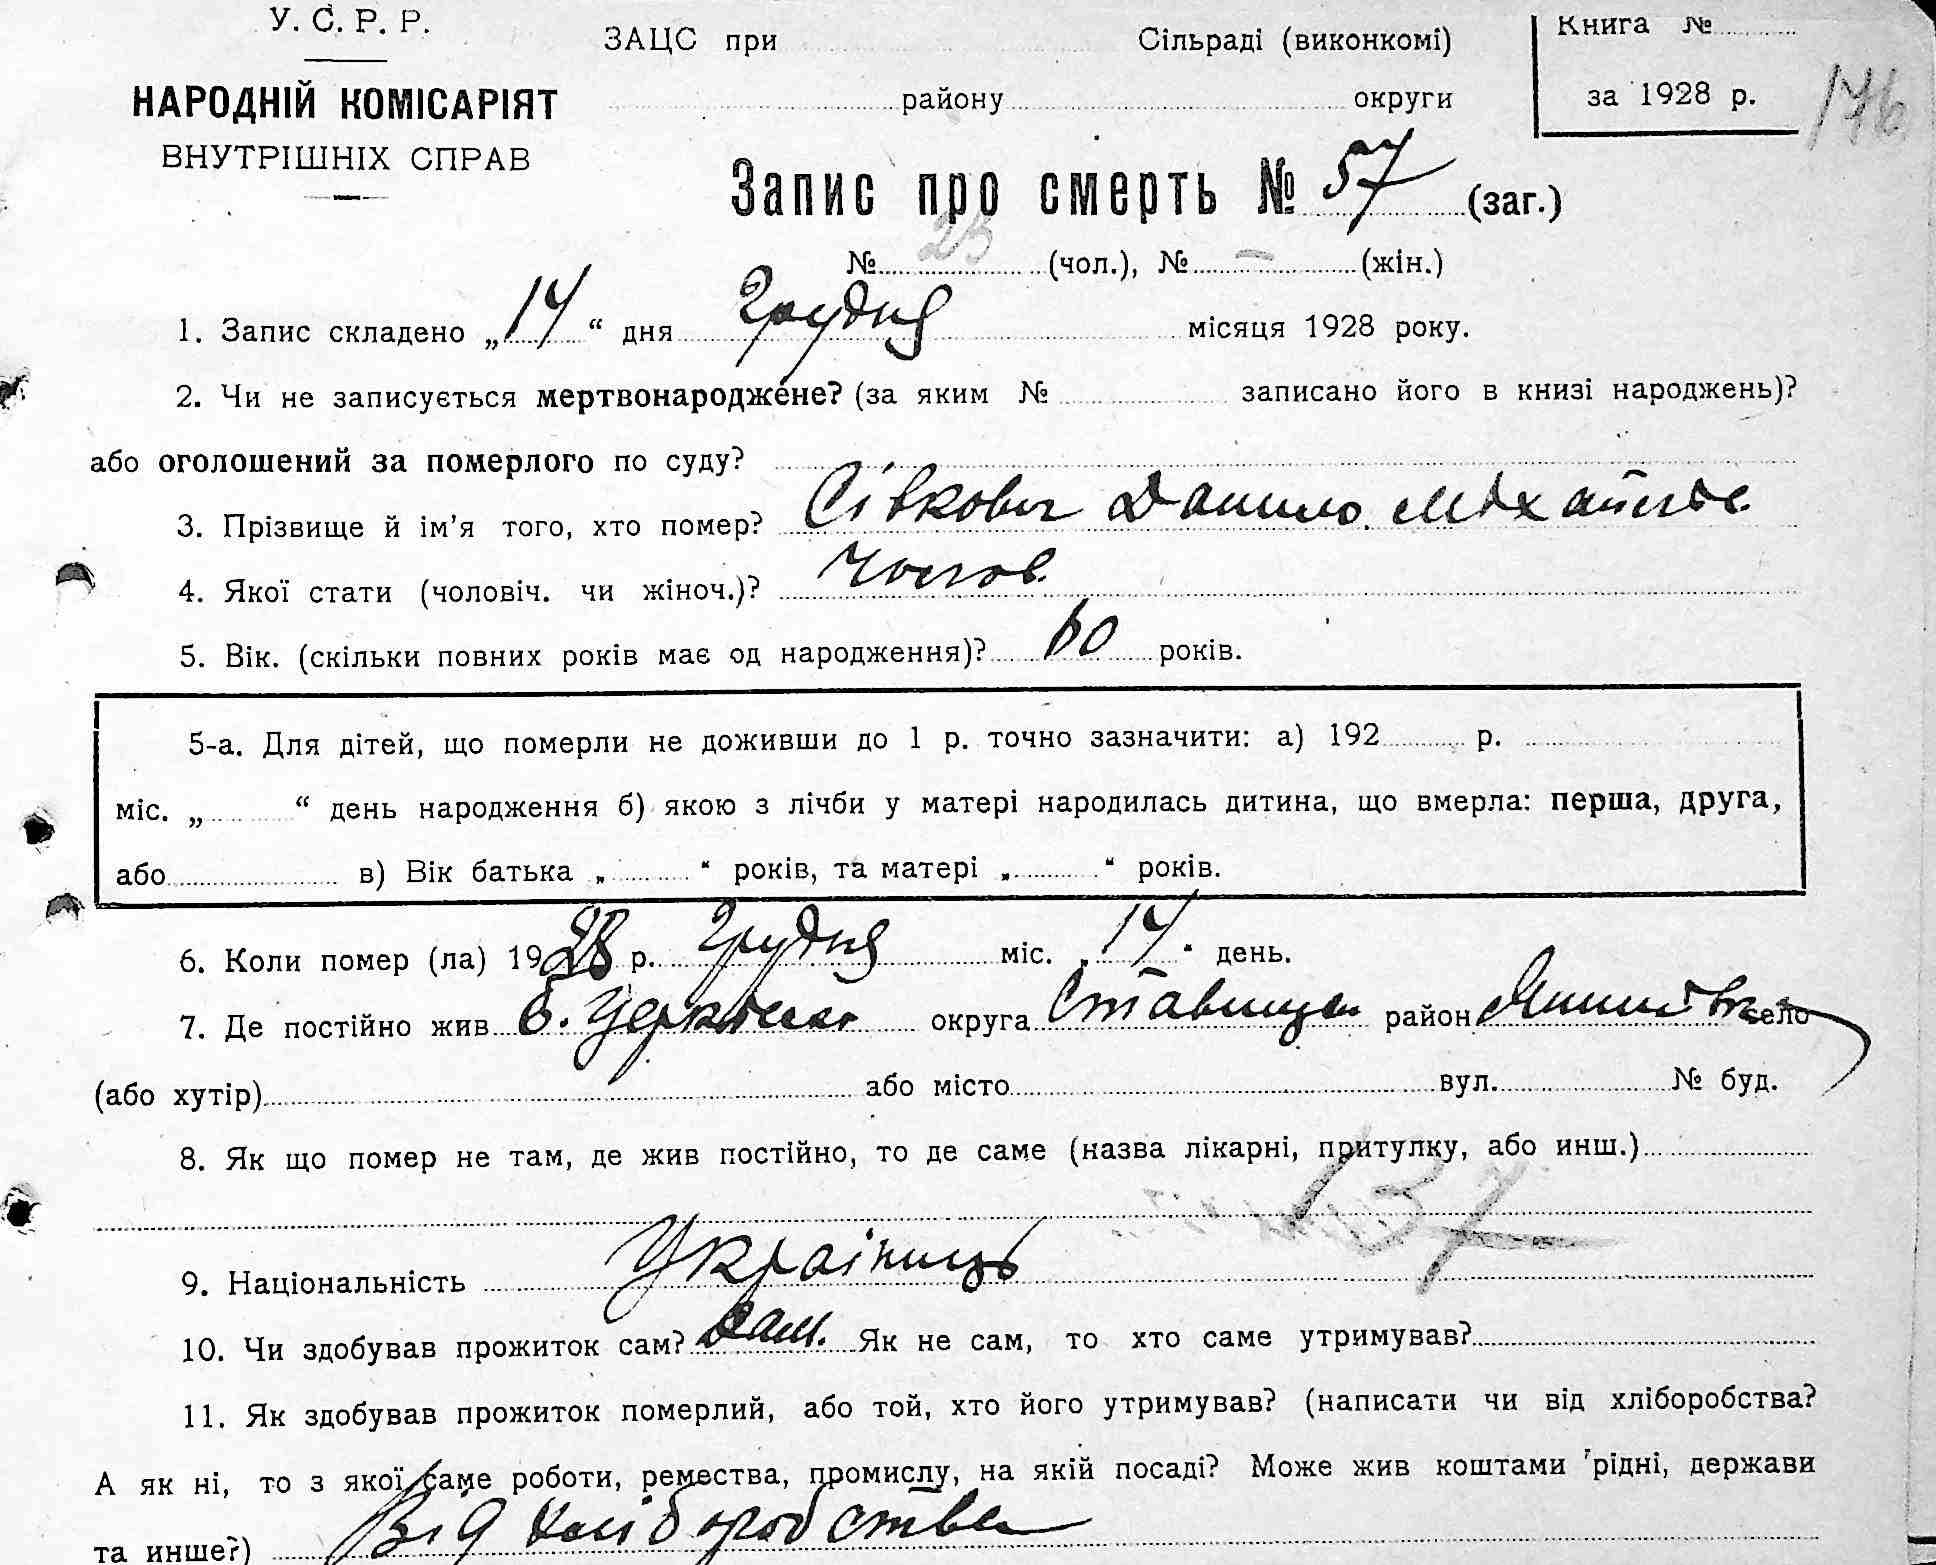 У. С. Р. Р.
НАРОДНІЙ КОМІСАРІЯТ
ВНУТРІШНІХ СПРАВ
ЗАЦС при Сільраді (виконкомі)
району округи
Книга №
за 1928 р.
146
Запис про смерть № 57 (заг.)
№ 23 (чол.), № – (жін.)
1. Запис складено „14“ дня Грудня місяця 1928 року.
2. Чи не записується мертвонароджене? (за яким № записано його в книзі народжень)?
або оголошений за померлого по суду?
3. Прізвище й ім’я того, хто помер? Сівкович Данило
4. Якої стати (чоловіч. чи жіноч.)? Чолов.
5. Вік. (скільки повних років має од народження)? 60 років.
5-а. Для дітей, що померли не доживши до 1 р. точно зазначити: а) 192 р.
міс. „ “ день народження б) якою з лічби у матері народилась дитина, що вмерла: перша, друга,
або в) Вік батька „ “ років, та матері „ “ років.
6. Коли помер (ла) 1928 р. Грудня міс. „14“ день.
7. Де постійно жив Б. Церківська округа Ставищен район село
(або хутір) або місто вул. № буд.
8. Як що помер не там, де жив постійно, то де саме (назва лікарні, притулку, або инш.)
137
9. Національність Українець
10. Чи здобував прожиток сам? Сам. Як не сам, то хто саме утримував?
11. Як здобував прожиток померлий, або той, хто його утримував? (написати чи від хліборобства?
А як ні, то з якої саме роботи, ремества, промислу, на якій посаді? Може жив коштами рідні, держави
та инше?) Від хліборобства